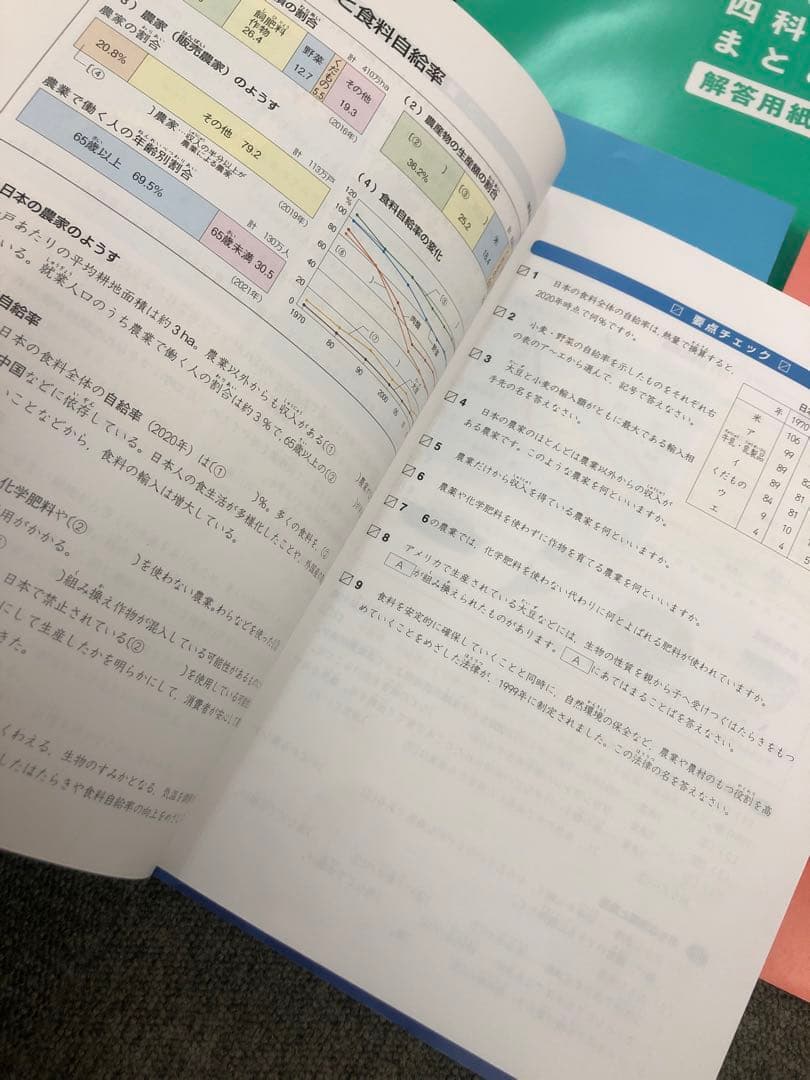 と食料自給率
積の割合
計 410万ha
飼肥料
作物
26.4
野菜
12.7
くだもの
5.5
その他
19.3
(2016年)
3) 農家(販売農家)のようす
農家の割合
20.8%
(④
その他 79.2
計 113万戸
(2019年)
)農家:収入の半分以上が
農業による農家
農業で働く人の年齢別割合
65歳以上 69.5%
計 130万人
65歳未満 30.5
(2021年)
(2) 農産物の生産額の割合
(②
)
36.2%
(③
)
25.2
米
(4) 食料自給率の変化
120
%
100
80
60
40
20
0
1970
80
90
2000
肉類
野菜
大豆
(⑦
日本の農家のようす
戸あたりの平均耕地面積は約3ha。農業以外からも収入がある(①
いる。就業人口のうち農業で働く人の割合は約3%で、65歳以上の(②
自給率
日本の食料全体の自給率(2020年)は(①　)%。多くの食料を、(②
中国などに依存している。日本人の食生活が多様化したことや、外国産の
いことなどから、食料の輸入は増大している。
化学肥料や(②　)を使わない農業。わらなどを使った
用がかかる。
)組み換え作物が混入している可能性があるものに
日本で禁止されている(②　)を使用している可能
にして生産したかを明らかにして、消費者が安心して
きた。
くわえる、生物のすみかとなる、気温を
したはたらきや食料自給率の向上をめざし
要点チェック
1 日本の食料全体の自給率は、熱量で換算すると、
2020年時点で何%ですか。
2 小麦・野菜の自給率を示したものをそれぞれ右
の表のア〜エから選んで、記号で答えなさい。
3 大豆と小麦の輸入額がともに最大である輸入相
手先の名を答えなさい。
4 日本の農家のほとんどは農業以外からの収入が
ある農家です。このような農家を何といいますか。
5 農業だけから収入を得ている農家を何といいますか。
6 農薬や化学肥料を使わずに作物を育てる農業を何といいますか。
7 6の農業では、化学肥料を使わない代わりに何とよばれる肥料が使われていますか。
8 アメリカで生産されている大豆などには、生物の性質を親から子へ受けつぐはたらきをもつ
A が組み換えられたものがあります。 A にあてはまることばを答えなさい。
9 食料を安定的に確保していくことと同時に、自然環境の保全など、農業や農村のもつ役割を高
めていくことをめざした法律が、1999年に制定されました。この法律の名を答えなさい。
年 1970
米 106
ア 99
牛乳・乳製品 89
イ 89
くだもの 84
ウ 9
エ 4
四科
まと
解答用紙